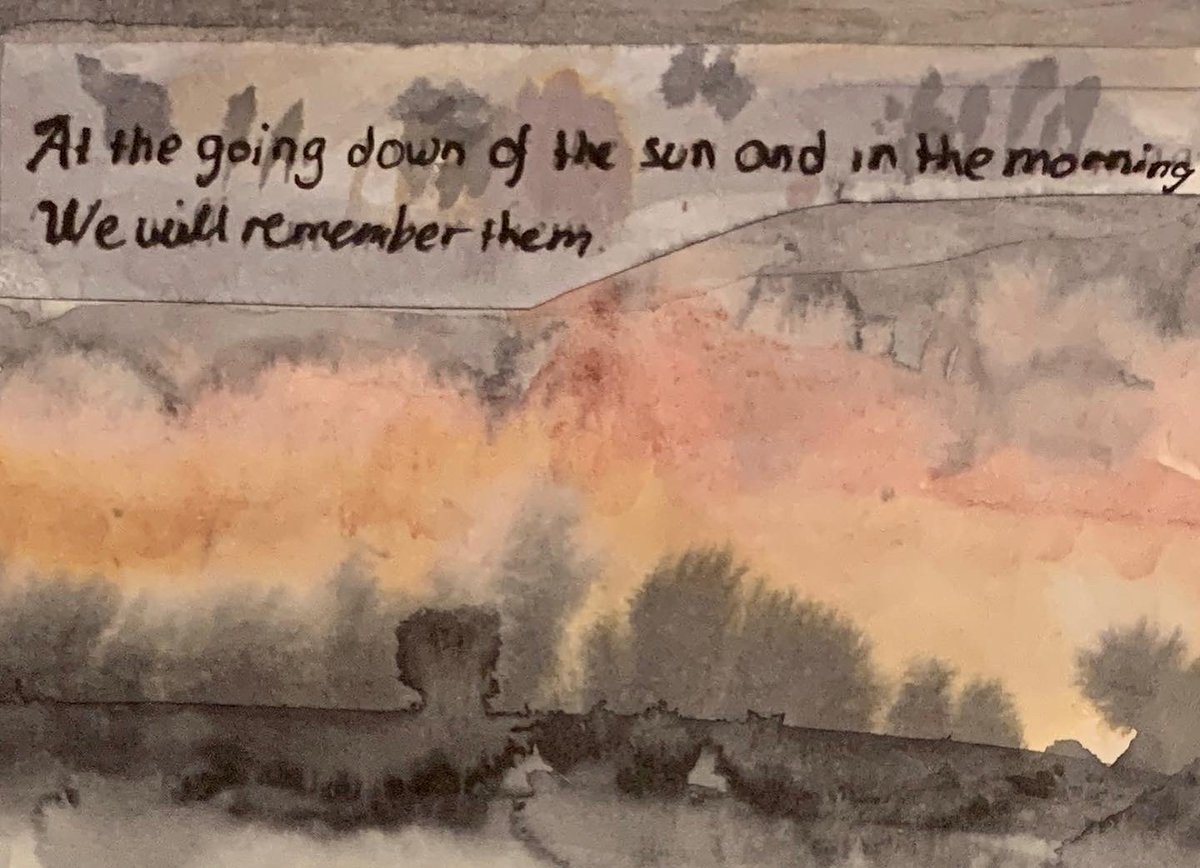 At the going down of the sun and in the morning
We will remember them.